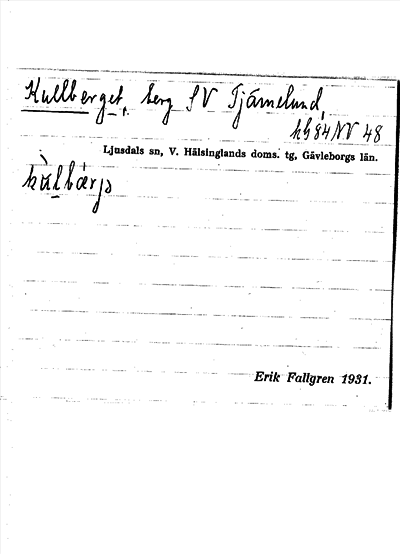 Kullberget, berg SV Tjärnelund,
hh84NV 48
Ljusdals sn, V. Hälsinglands doms. tg, Gävleborgs län.
Erik Fallgren 1931.